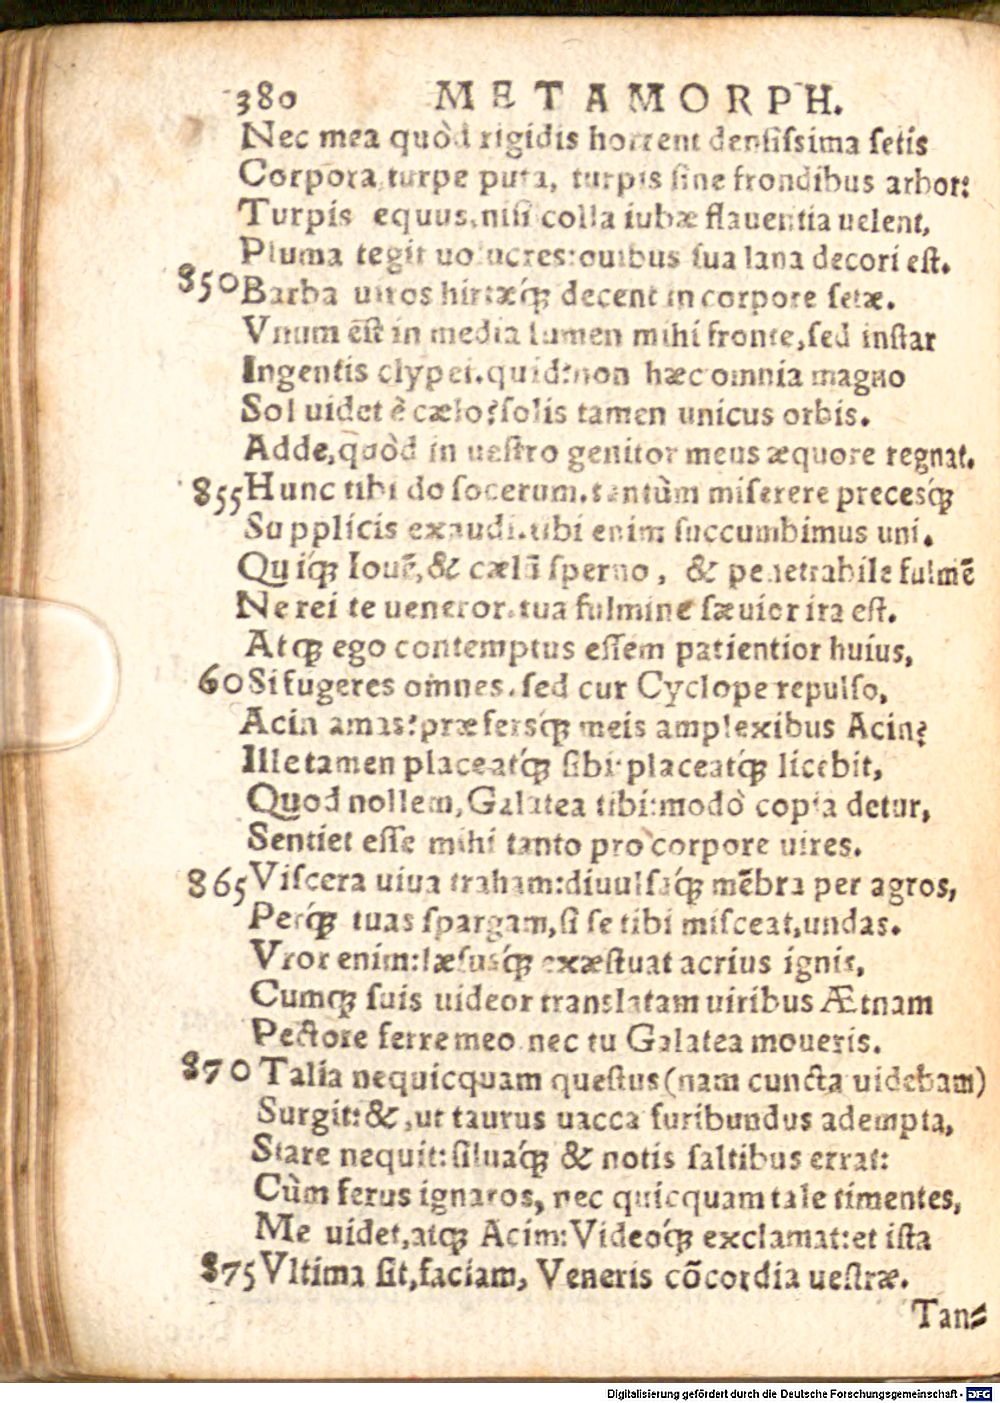 380 METAMORPH.
Nec mea quòd rigidis horrent densissima setis
Corpora, turpe puta, turpis sine frondibus arbor:
Turpis equus, nisi colla iubæ flauentia uelent,
Pluma tegit uolucres: ouibus sua lana decori est.
850 Barba uiros hirtæq́; decent in corpore setæ.
Vnum ēst in media lumen mihi fronte, sed instar
Ingentis clypei. quid? non hæc omnia magno
Sol uidet è cælo? solis tamen unicus orbis.
Adde, quòd in uestro genitor meus æquore regnat.
855 Hunc tibi do socerum. tantùm miserere precesq́;
Supplicis exaudi. tibi enim succumbimus uni.
Quiq́; Iouē, & cælū sperno, & penetrabile fulmē
Nerei te ueneror. tua fulmine sæuior ira est.
Atq; ego contemptus essem patientior huius,
60 Si fugeres omnes. sed cur Cyclope repulso,
Acin amas? præfersq́; meis amplexibus Acin?
Ille tamen placeatq́; sibi placeatq́; licebit,
Quod nollem, Galatea tibi: modò copia detur,
Sentiet esse mihi tanto pro corpore uires.
865 Viscera uiua traham: diuulsaq́; mēbra per agros,
Perq́; tuas spargam, si se tibi misceat, undas.
Vror enim: læsusq́; exæstuat acrius ignis,
Cumq; suis uideor translatam uiribus Ætnam
Pectore ferre meo. nec tu Galatea moueris.
870 Talia nequicquam questus (nam cuncta uidebam)
Surgit: &, ut taurus uacca furibundus adempta,
Stare nequit: siluaq́; & notis saltibus errat:
Cùm ferus ignaros, nec quicquam tale timentes,
Me uidet, atq; Acim: Videoq́; exclamat: et ista
875 Vltima sit, faciam, Veneris cōcordia uestræ.
Tan-
Digitalisierung gefördert durch die Deutsche Forschungsgemeinschaft - DFG